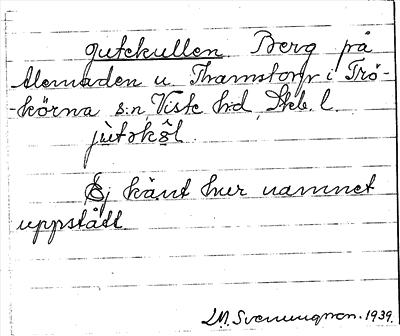 Jutekullen Berg på
Alemaden u. Thamstorp i Trö-
-körna s:n, Viste hd, Skb. l.
jutskǝl
Ej känt hur namnet
uppstått.
L.M. Svenungsson. 1939.